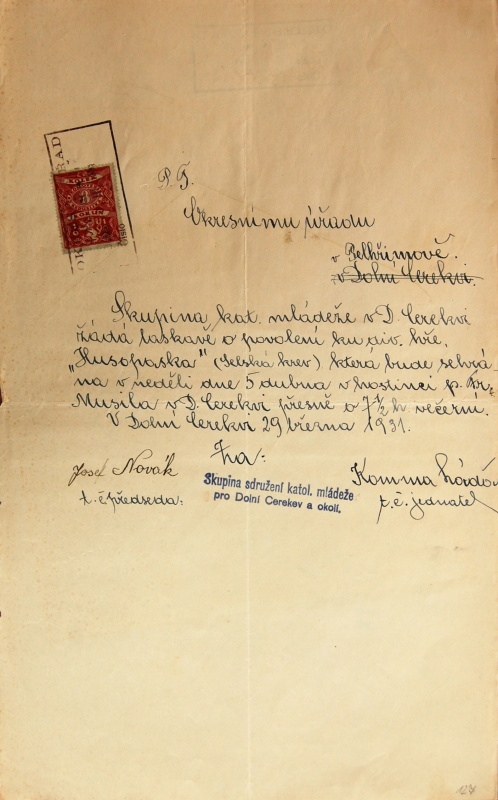 P. T.
Okresnímu úřadu
v Pelhřimově.
v Dolní Cerekvi.
Skupina kat. mládeže v D. Cerekvi
žádá laskavě o povolení ku div. hře.
„Husopaska" (Selská krev) která bude sehrá-
na v neděli dne 5 dubna v hostinci p. Fr.
Musila v D. Cerekvi přesně o 7½ h. večerní.
V Dolní Cerekvi 29 března 1931.
Za:
Josef Novák
t. č. předseda:
Skupina sdružení katol. mládeže
pro Dolní Cerekev a okolí.
Komma
t. č. jednatel